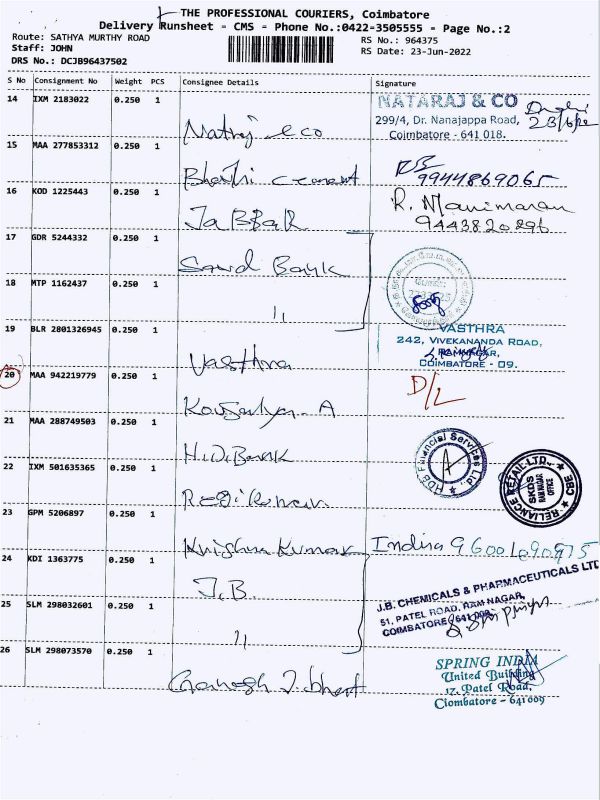 THE PROFESSIONAL COURIERS, Coimbatore
Delivery Runsheet - CMS - Phone No.:0422-3505555 - Page No.:2
Route: SATHYA MURTHY ROAD
RS No.: 964375
Staff: JOHN
RS Date: 23-Jun-2022
DRS No.: DCJB96437502
S No Consignment No Weight PCS Consignee Details Signature
14 IXM 2183022 0.250 1 Natraj & co
NATARAJ & CO
299/4, Dr. Nanajappa Road,
Coimbatore - 641 018.
23/6/22
15 MAA 277853312 0.250 1 Bharthi cement
9944869065
16 KOD 1225443 0.250 1 JaBBaR
R. Manimaran
9443820896
17 GDR 5244332 0.250 1 Bank
18 MTP 1162437 0.250 1 "
19 BLR 2801326945 0.250 1 Vasthra
VASTHRA
242, VIVEKANANDA ROAD,
RAMNAGAR,
COIMBATORE - 09.
20 MAA 942219779 0.250 1 Kousalya. A
D/L
21 MAA 288749503 0.250 1 H.D.Bank
HDB Financial Services Ltd.
22 IXM 501635365 0.250 1
RELIANCE RETAIL LTD.,
SKDS
RAM NAGAR
OFFICE
CBE
23 GPM 5206897 0.250 1 Krishna Kumar
Indira 96001090975
24 KDI 1363775 0.250 1 J.B.
J.B. CHEMICALS & PHARMACEUTICALS LTD
51, PATEL ROAD, RAM NAGAR,
COIMBATORE 641 009.
25 SLM 298032601 0.250 1 "
26 SLM 298073570 0.250 1 Ganesh J. bhat
SPRING INDIA
United Building
17, Patel Road,
Ciombatore - 641 009